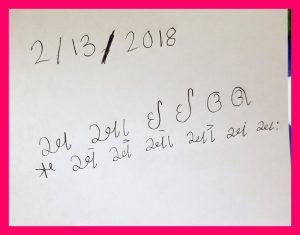 2/13/2018
અ આ ઈ ઈ ઉ ઊ
* એ ઐ ઓ ઔ અં અઃ